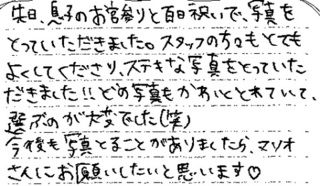 先日、息子のお宮参りと百日祝いで、写真を
とっていただきました。スタッフの方々もとても
よくしてくださり、ステキな写真をとっていた
だきました!!どの写真もかわいくとれていて、
選ぶのが大変でした(笑)
今後も写真とることがありましたら、マリオ
さんにお願いしたいと思います♡